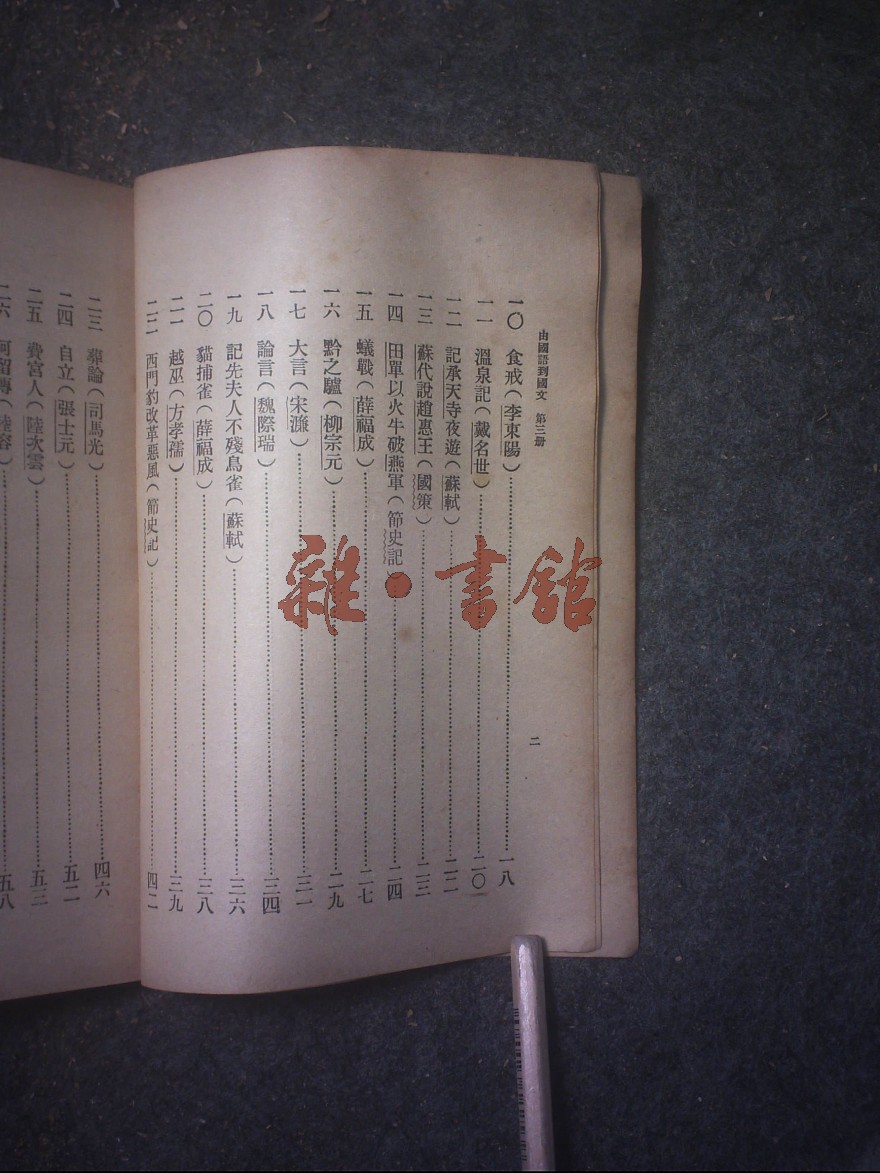 由國語到國文 第三册
二
一〇 食戒（李東陽）⋯⋯一八
一一 溫泉記（戴名世）⋯⋯二〇
一二 記承天寺夜遊（蘇軾）⋯⋯二二
一三 蘇代說趙惠王（國策）⋯⋯二三
一四 田單以火牛破燕軍（節史記）⋯⋯二四
一五 蟻戰（薛福成）⋯⋯二七
一六 黔之驢（柳宗元）⋯⋯二九
一七 大言（宋濂）⋯⋯三一
一八 論言（魏際瑞）⋯⋯三四
一九 記先夫人不殘鳥雀（蘇軾）⋯⋯三六
二〇 貓捕雀（薛福成）⋯⋯三八
二一 越巫（方孝孺）⋯⋯三九
二二 西門豹改革惡風（節史記）⋯⋯四二
二三 葬論（司馬光）⋯⋯四六
二四 自立（張士元）⋯⋯五二
二五 費宮人（陸次雲）⋯⋯五三
二六 阿留傳（陸容）⋯⋯五八
雜·書館